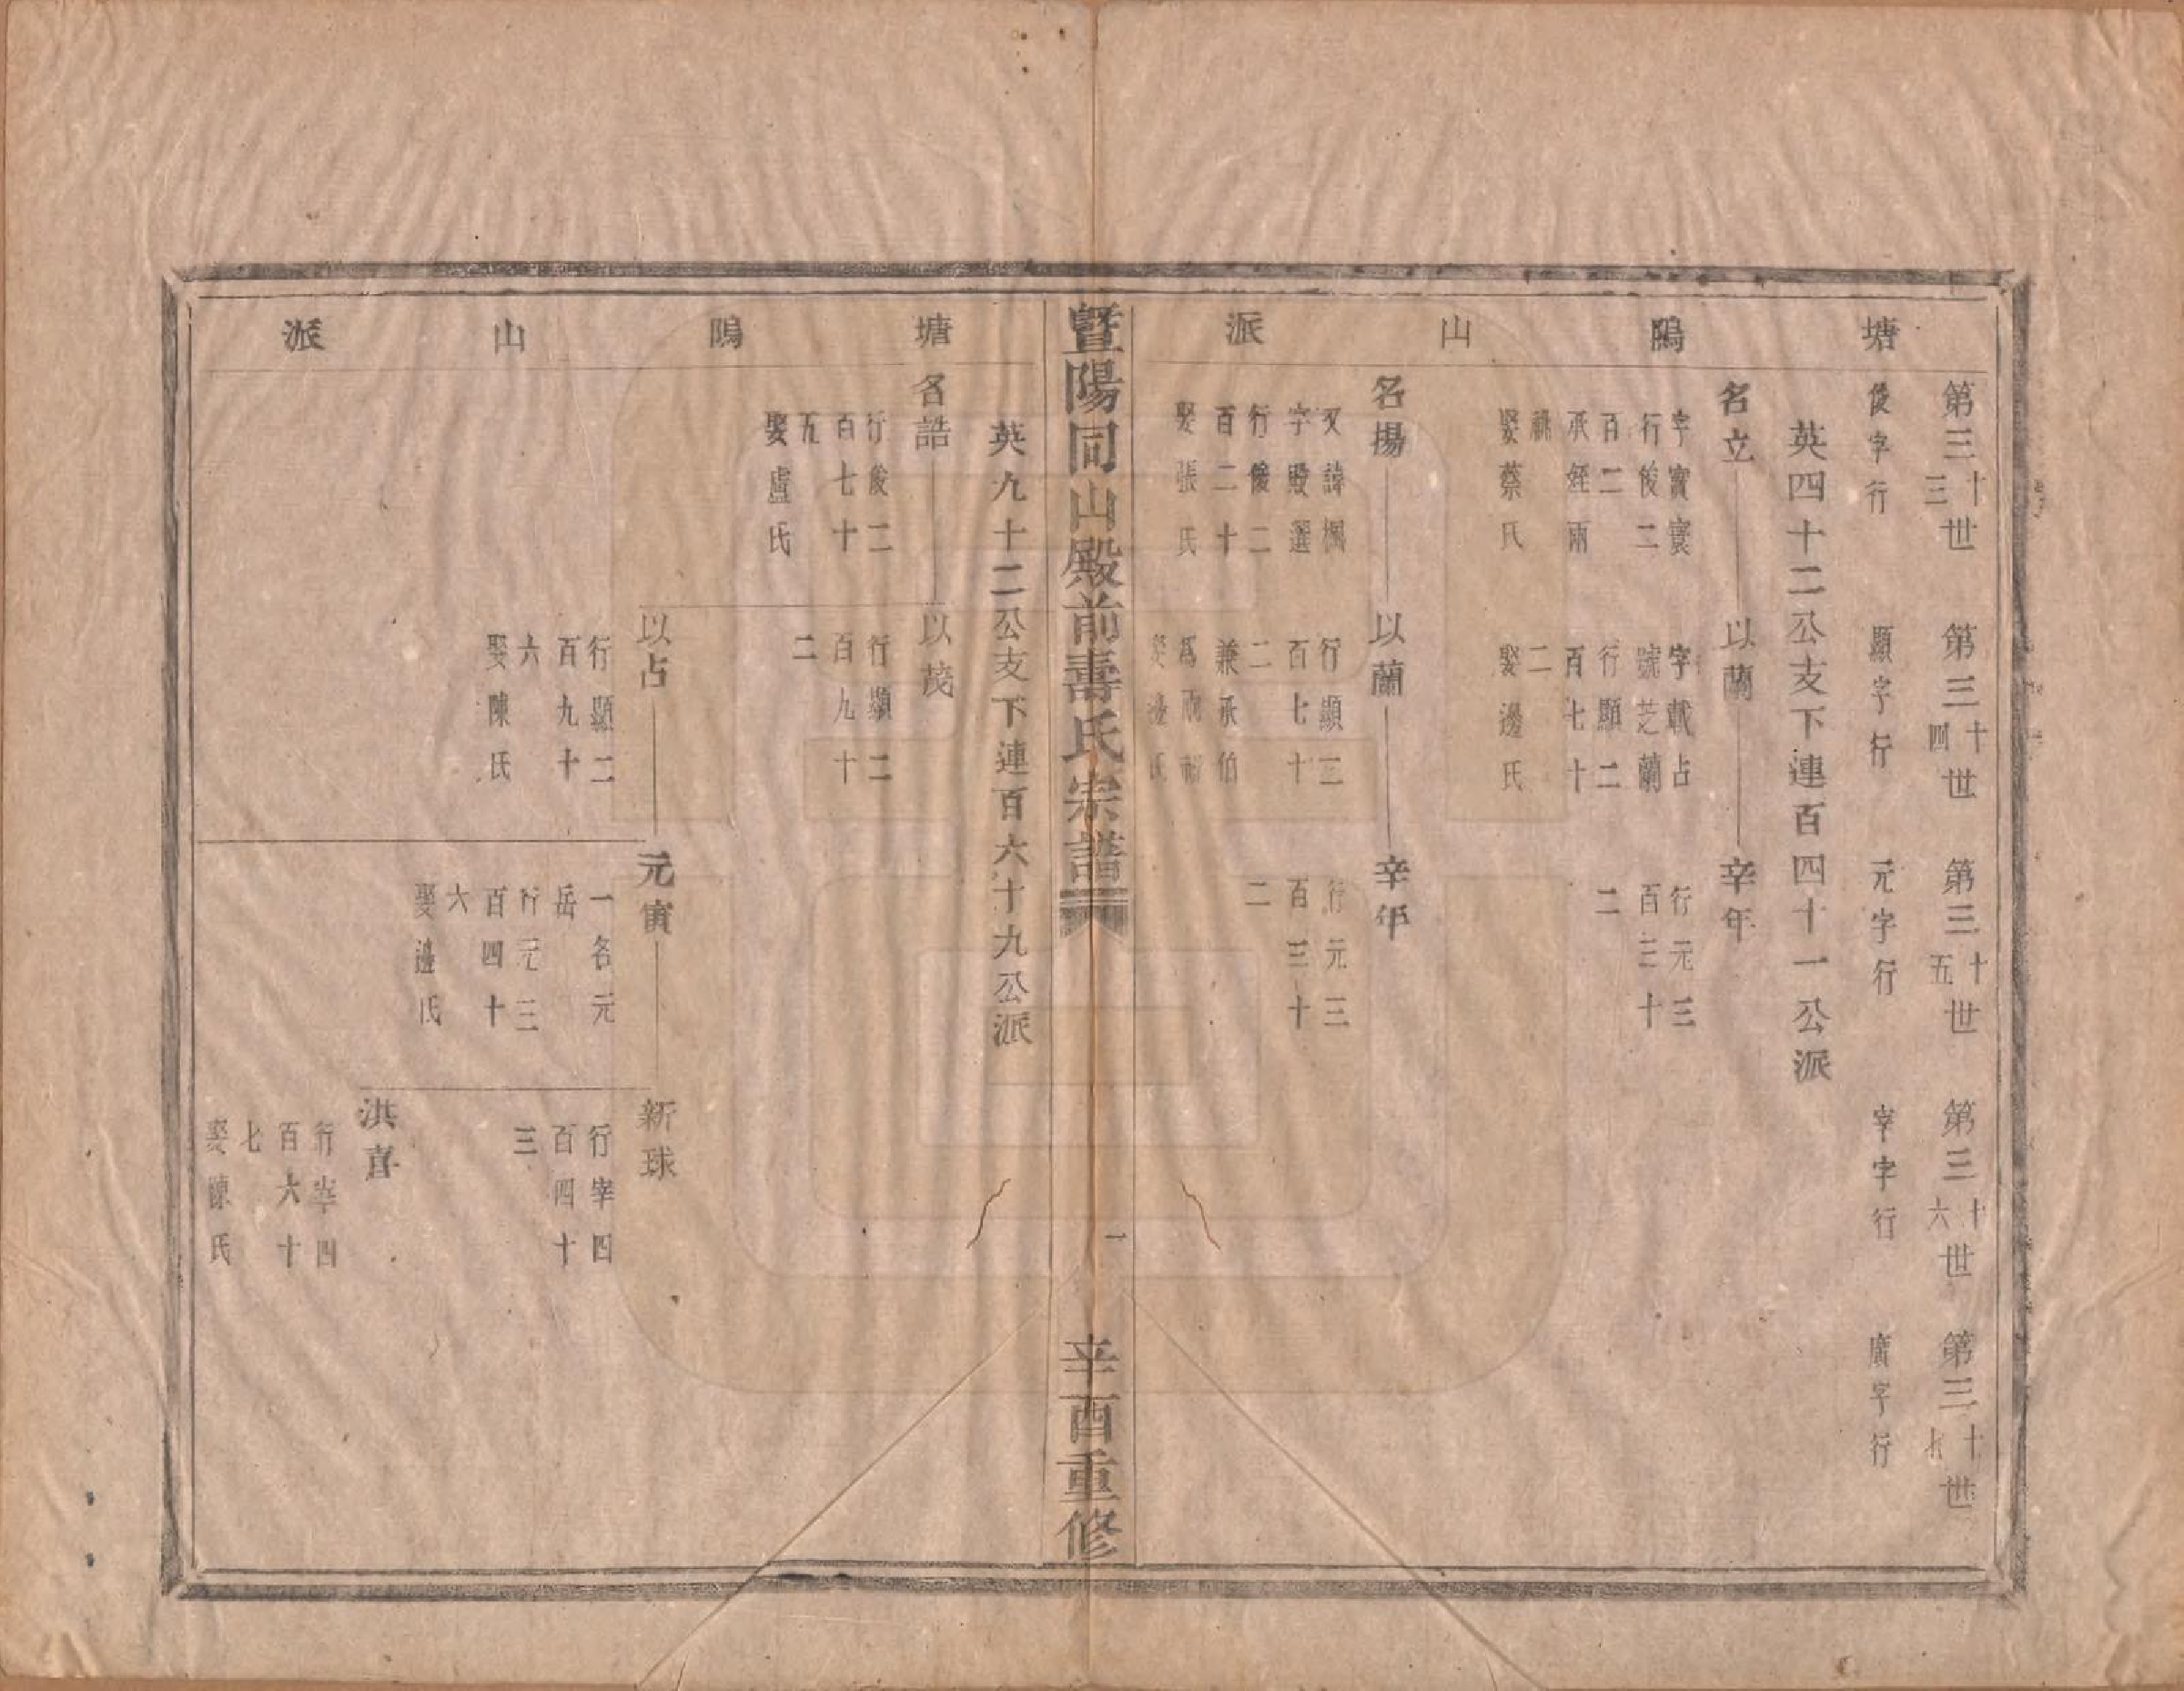 塘鴡山派
第三十三世
第三十四世
第三十五世
第三十六世
第三十七世
俊字行
顯字行
元字行
宰字行
廣字行
英四十二公支下連百四十一公派
名立
字寶寰
行俊二
百二
承姪兩
祧
娶蔡氏
以蘭
字載占
號芝蘭
行顯二
百七十
二
娶邊氏
辛年
行元三
百三十
二
名揚
又諱楓
字殿選
行俊二
百二十
娶張氏
以蘭
行顯二
百七十
二
兼承伯
爲兩祧
娶邊氏
辛年
行元三
百三十
二
暨陽同山殿前壽氏宗譜
一
辛酉重修
塘鴡山派
英九十二公支下連百六十九公派
名誥
行俊二
百七十
五
娶盧氏
以茂
行顯二
百九十
二
以占
行顯二
百九十
六
娶陳氏
元寅
一名元
岳
行元三
百四十
六
娶邊氏
新球
行宰四
百四十
三
洪喜
行宰四
百六十
七
娶陳氏